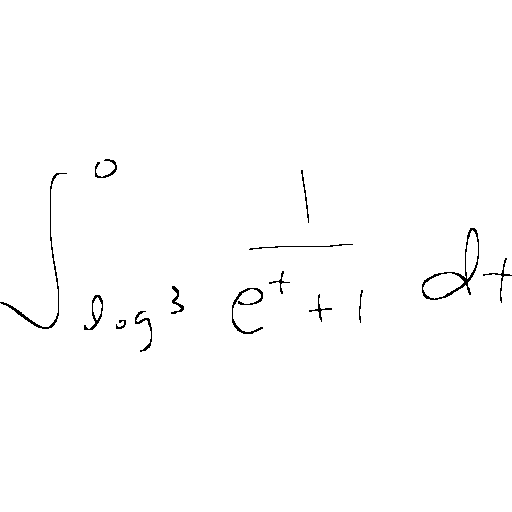 \int_{\log 3}^{0} \frac{1}{e^t + 1} dt